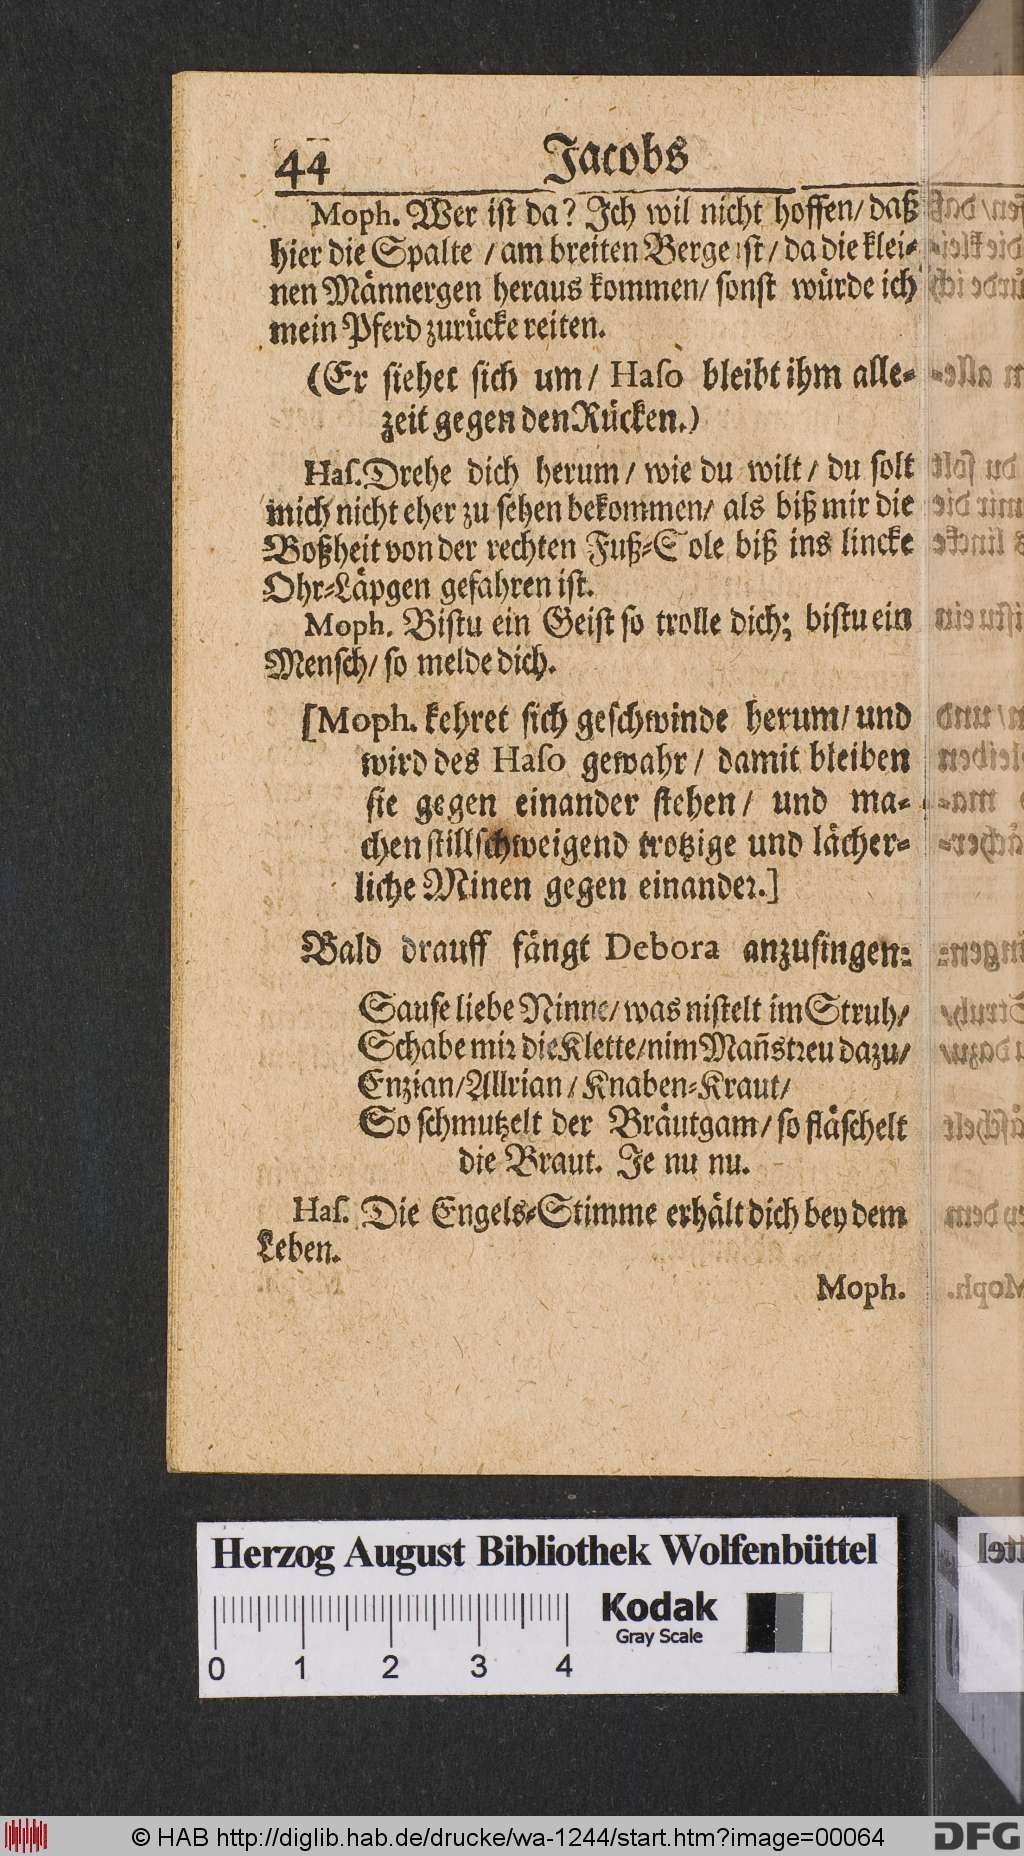 44 Jacobs
Moph. Wer ist da? Ich wil nicht hoffen/ daß
hier die Spalte / am breiten Berge ist/ da die klei-
nen Männergen heraus kommen/ sonst würde ich
mein Pferd zurücke reiten.
(Er siehet sich um/ Haso bleibt ihm alle-
zeit gegen den Rücken.)
Has. Drehe dich herum/ wie du wilt/ du solt
mich nicht eher zu sehen bekommen/ als biß mir die
Boßheit von der rechten Fuß-Sole biß ins lincke
Ohr-Läpgen gefahren ist.
Moph. Bistu ein Geist so trolle dich; bistu ein
Mensch/ so melde dich.
[Moph. kehret sich geschwinde herum/ und
wird des Haso gewahr/ damit bleiben
sie gegen einander stehen/ und ma-
chen stillschweigend trotzige und lächer-
liche Minen gegen einander.]
Bald drauff fängt Debora anzusingen:
Sause liebe Ninne/ was nistelt im Struh/
Schabe mir die Klette/ nim Mañstreu dazu/
Enzian/ Allrian / Knaben-Kraut/
So schmutzelt der Bräutgam/ so fläschelt
die Braut. Je nu nu.
Has. Die Engels-Stimme erhält dich bey dem
Leben.
Moph.
Herzog August Bibliothek Wolfenbüttel
Kodak
Gray Scale
0 1 2 3 4
© HAB http://diglib.hab.de/drucke/wa-1244/start.htm?image=00064
DFG